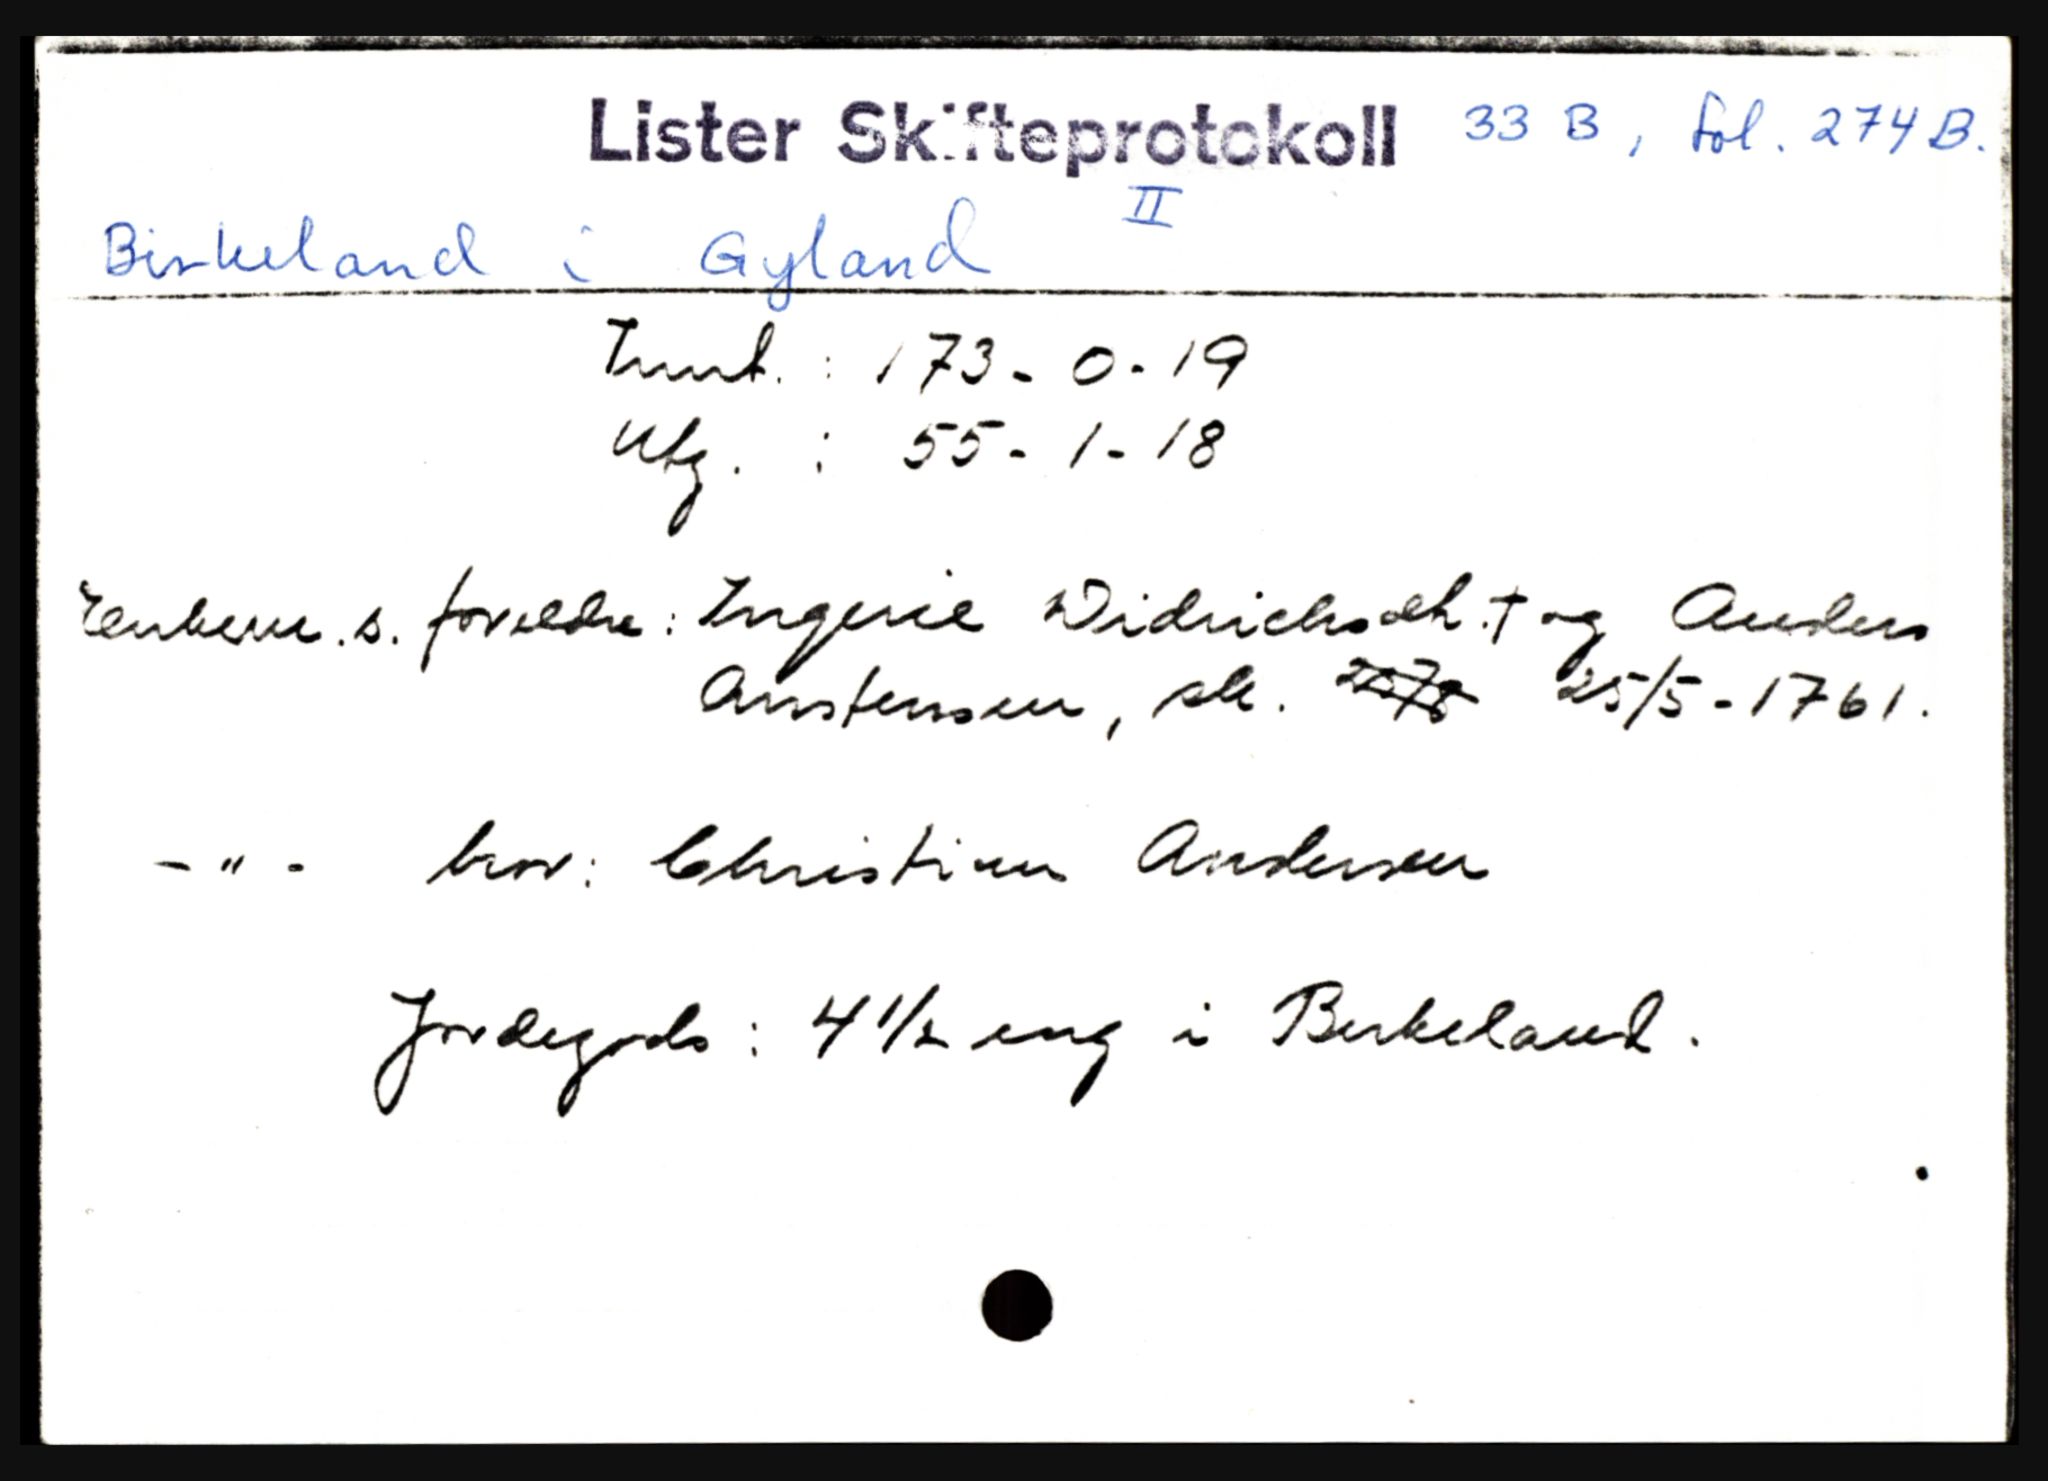 Lister Skifteprotokoll 33 B, fol. 274 B.
II
Birkeland i Gyland
Innt. : 173 - 0 - 19
Utg. : 55 - 1 - 18
Enkem. s. foreldre : Ingerie Didrichsdt. † og Anders
Anstensen, sk. 25/5 - 1761.
- " - bror : Christian Andersen
Jordegods : 4 1/2 eng i Birkeland.